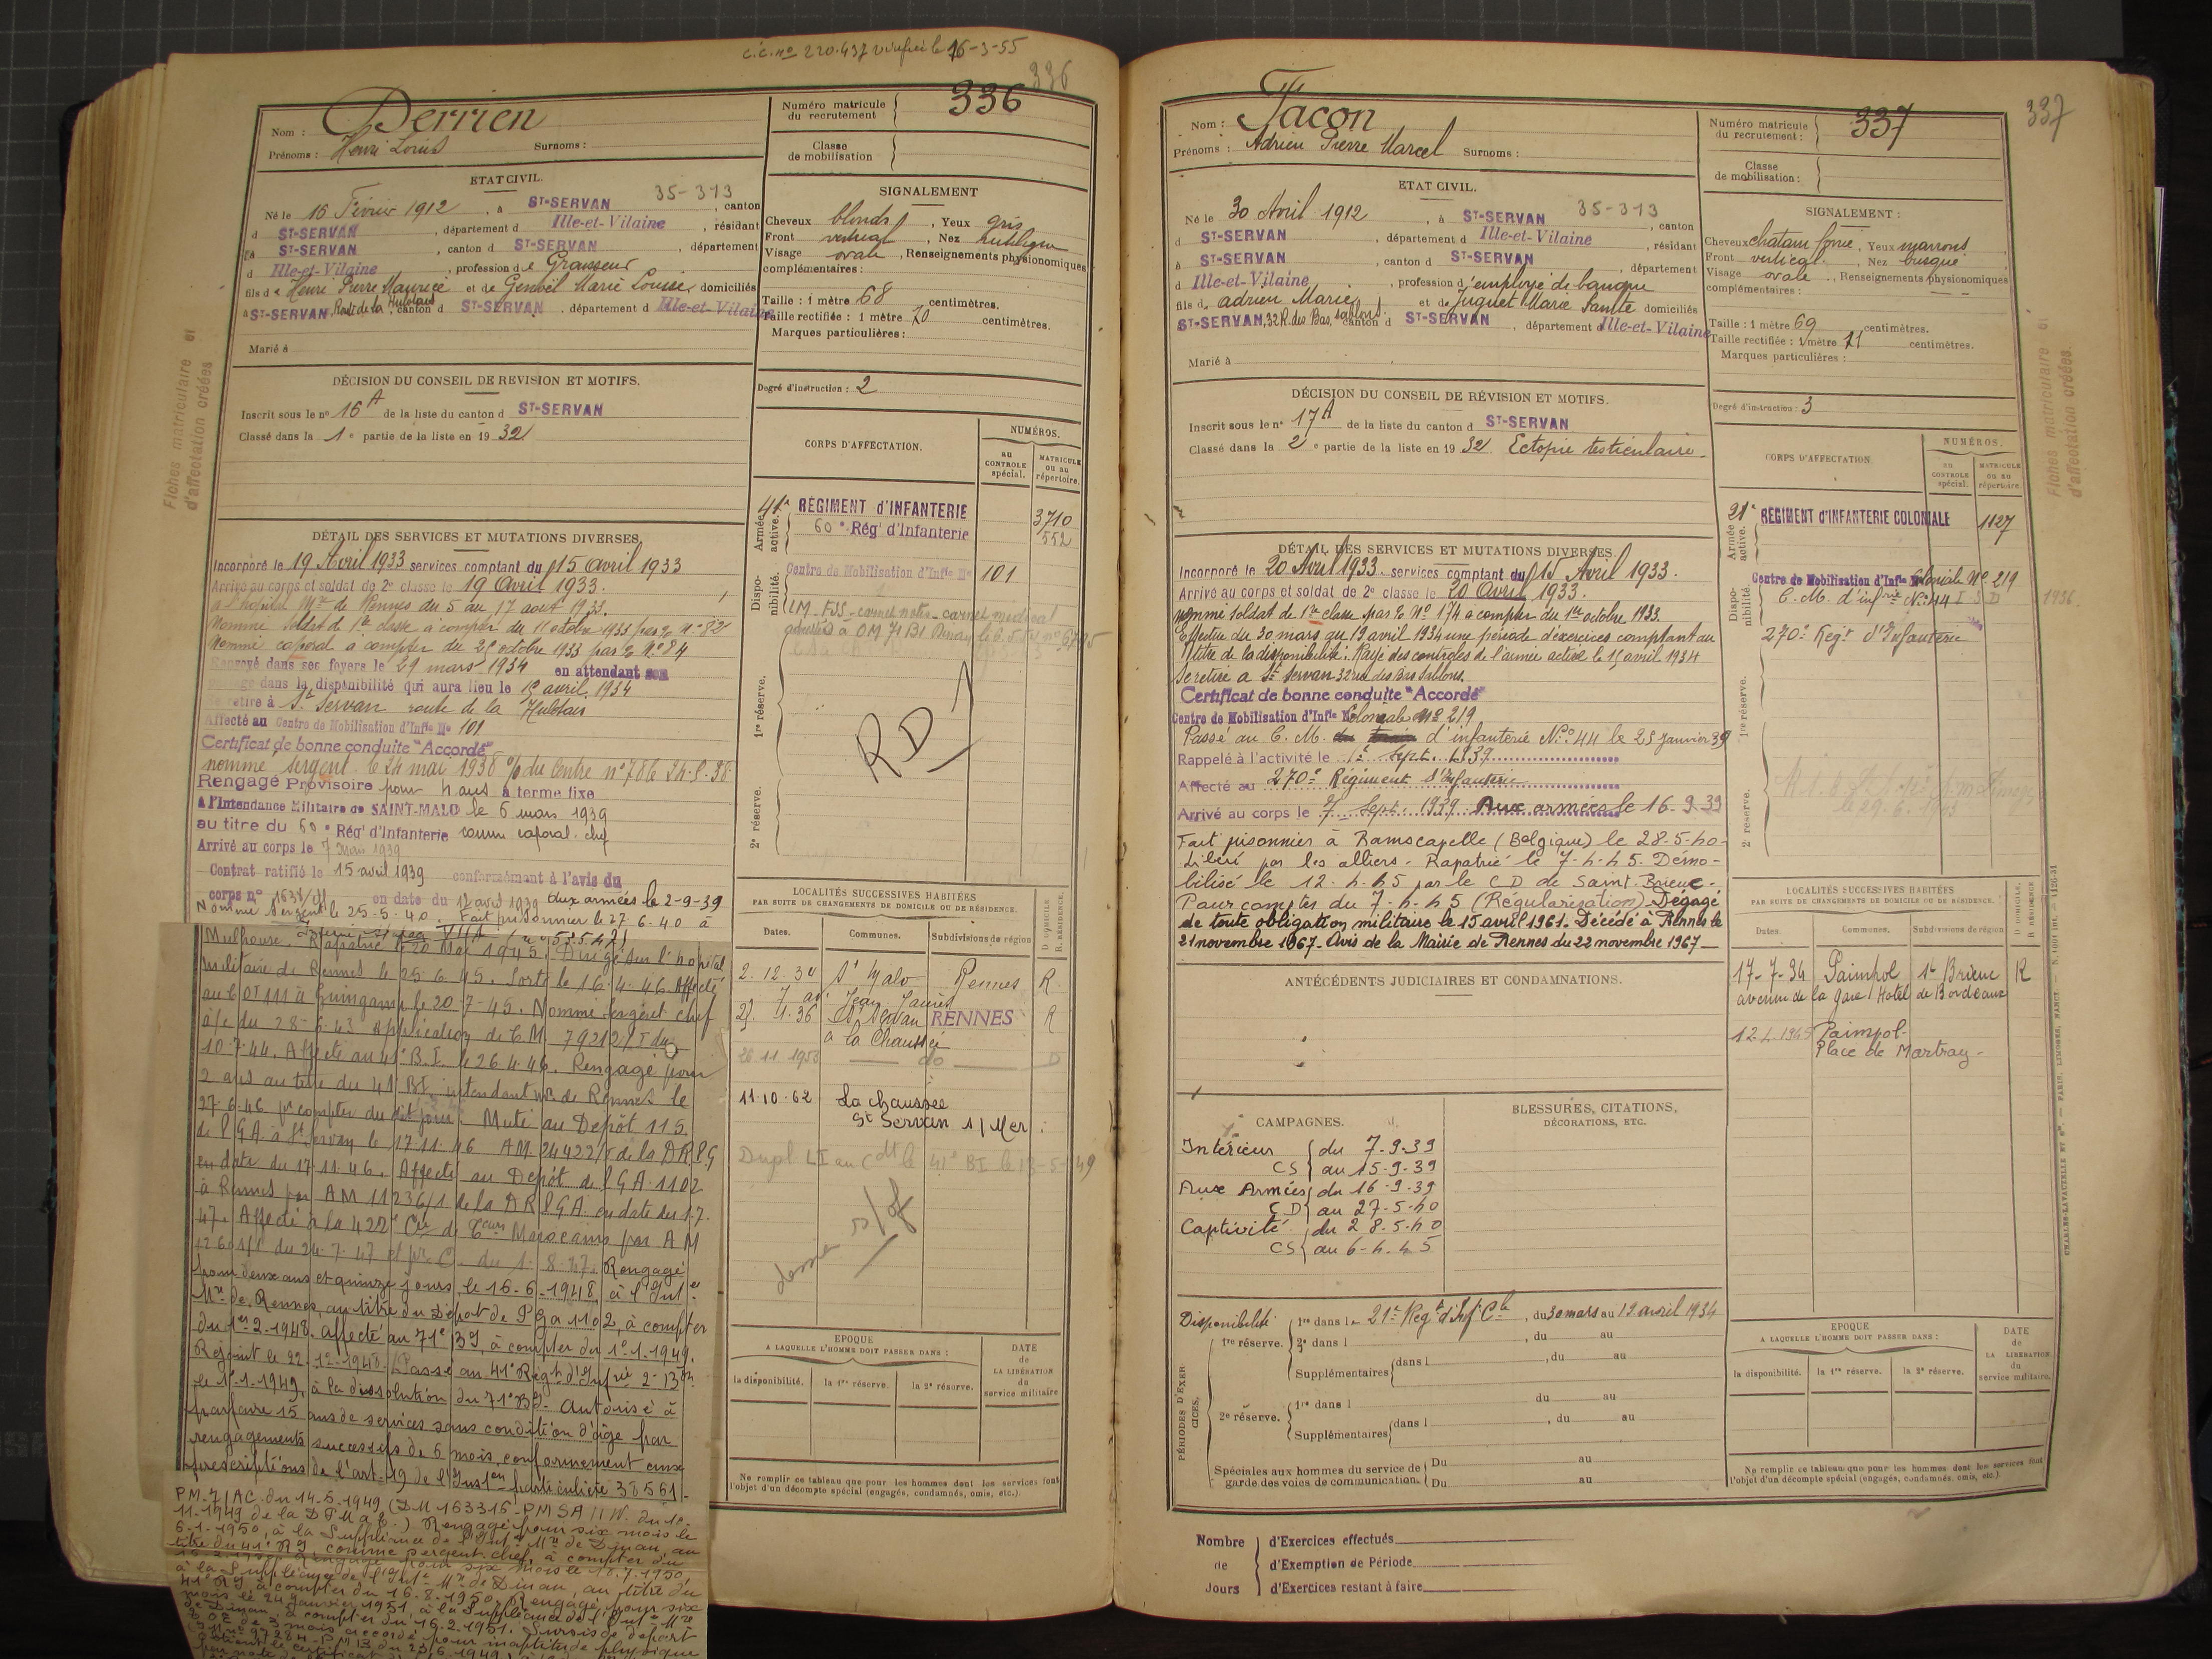 c.c. no 220.437 le 16-3-55
336
Nom : Derrien
Prénoms : Henri Louis Surnoms :
Numéro matricule du recrutement 336
Classe de mobilisation
ETAT CIVIL.
35-313
Né le 16 Février 1912, à ST-SERVAN, canton
d ST-SERVAN, département d Ille-et-Vilaine, résidant
à ST-SERVAN, canton d ST-SERVAN, département
d Ille-et-Vilaine, profession de Graisseur
fils de Henri Pierre Maurice et de Marie Louise domiciliés
à ST-SERVAN, Route de la Hulotais canton d ST-SERVAN, département d Ille-et-Vilaine
Marié à
SIGNALEMENT
Cheveux blonds, Yeux gris
Front vertical, Nez rectiligne
Visage ovale, Renseignements physionomiques
complémentaires :
Taille : 1 mètre 68 centimètres.
Taille rectifiée : 1 mètre 70 centimètres.
Marques particulières :
Degré d'instruction : 2
DÉCISION DU CONSEIL DE REVISION ET MOTIFS.
Inscrit sous le no 16 A de la liste du canton d ST-SERVAN
Classé dans la 1e partie de la liste en 1932
CORPS D'AFFECTATION.
NUMÉROS.
au CONTROLE spécial.
MATRICULE ou au répertoire.
Armée active.
41e RÉGIMENT d'INFANTERIE 3710
60e Régt d'Infanterie 552
Disponibilité.
Centre de Mobilisation d'Infie No 101
1re réserve.
RD
2e réserve.
DÉTAIL DES SERVICES ET MUTATIONS DIVERSES.
Incorporé le 19 Avril 1933 services comptant du 15 avril 1933
Arrivé au corps et soldat de 2e classe le 19 Avril 1933.
à l'hôpital Mre de Rennes du 5 au 17 aout 1933.
Nommé soldat de 1re classe à compter du 11 octobre 1933 par No 82
Nommé caporal à compter du 21 octobre 1933 par No 84
Renvoyé dans ses foyers le 29 mars 1934 en attendant son
passage dans la disponibilité qui aura lieu le 15 avril 1934
Se retire à St Servan route de la Hulotais
Affecté au Centre de Mobilisation d'Infie No 101
Certificat de bonne conduite "Accordé"
nommé Sergent le 24 mai 1938 du Centre no 78 le 24-5-38
Rengagé Provisoire pour 4 ans à terme fixe
à l'Intendance Militaire de SAINT-MALO le 6 mars 1939
au titre du 60e Régt d'Infanterie comme caporal-chef
Arrivé au corps le 7 Mars 1939
Contrat ratifié le 15 avril 1939 conformément à l'avis du
corps no en date du 12 avril 1939 aux armées le 2-9-39
Nommé Sergent le 25-5-40. Fait prisonnier le 27-6-40 à
Mulhouse. Rapatrié le 20 Mai 1945. Dirigé sur l'hôpital
militaire de Rennes le 25-6-45. Sorti le 16-4-46. Affecté
au C OT 111 à Guingamp le 20-7-45. Nommé Sergent chef
à/c du 28-6-43 Application de CM 79212/5 du
10-7-44. Affecté au 41e B.I. le 26-4-46. Rengagé pour
2 ans au titre du 41e BI intendant Mre de Rennes le
27-6-46 pr compter du dit jour. Muté au Dépôt 115
de PGA à St Servan le 17.11.46 AM 24422/ de la DRPG
en date du 17.11.46. Affecté au Dépôt de PGA 1102
à Rennes par AM 11236/1 de la DRPGA en date du 1-7-
47. Affecté à la 422e Cie de Teurs Marocains par AM
du 24-7-47 et pr C. du 1-8-47. Rengagé
pour deux ans et quinze jours, le 16-6-1948, à l'Intce
Mre de Rennes, au titre du Dépôt de PGa 1102, à compter
du 1er-2-1948. Affecté au 71e BI, à compter du 1e-1-1949.
Rejoint le 22-1e-1948. Passé au 41e Régt d'Infrie 2e Bon
le 1e-1-1949, à la dissolution du 71e BI. Autorisé à
parfaire 15 ans de services sans condition d'âge par
rengagements successifs de 6 mois, conformément aux
prescriptions de l'art. 19 de l'Inston particulière 38561-
PM-7/AC du 14-5-1949 (DM 163316-PMSA/1W. du 10-
11-1949 de la DPMAT) Rengagé pour six mois le
6-1-1950, à la Suppléance de l'Intce Mre de Dinan, au
titre du 41e RI, comme sergent-chef, à compter du
16-2-1950. Rengagé pour six mois le 18-7-1950,
à la Suppléance de l'Intce Mre de Dinan, au titre du
41e RI à compter du 16-8-1950. Rengagé pour six
mois le 24 janvier 1951, à la Suppléance de l'Intce Mre
de Dinan, à compter du 16-2-1951. Sursis de départ
TOE de 3 mois accordé pour inaptitude physique
LOCALITÉS SUCCESSIVES HABITÉES
PAR SUITE DE CHANGEMENTS DE DOMICILE OU DE RÉSIDENCE.
Dates. Communes. Subdivisions de région D DOMICILE. R. RÉSIDENCE.
2.12.34 St Malo Rennes R
7 av. Jean Jaurès
27.4.36 St Servan RENNES R
à la Chaussée
26.11.1953 do D
11.10.62 La Chaussée
St Servan s/Mer
Dupl. LI au Cdt le 41e BI le 13-5-49
EPOQUE
A LAQUELLE L'HOMME DOIT PASSER DANS :
la disponibilité. la 1re réserve. la 2e réserve.
DATE de LA LIBÉRATION du service militaire
Ne remplir ce tableau que pour les hommes dont les services font
l'objet d'un décompte spécial (engagés, condamnés, omis, etc.).
Fiches matriculaire et d'affectation créées
337
Nom : Tacon
Prénoms : Adrien Pierre Marcel Surnoms :
Numéro matricule du recrutement : 337
Classe de mobilisation :
ETAT CIVIL.
35-313
Né le 30 Avril 1912, à ST-SERVAN, canton
d ST-SERVAN, département d Ille-et-Vilaine, résidant
à ST-SERVAN, canton d ST-SERVAN, département
d Ille-et-Vilaine, profession d'employé de banque
fils d adrien Marie et de Juguet Marie Sainte domiciliés
ST-SERVAN, 32 R. des Bas Sablons canton d ST-SERVAN, département d Ille-et-Vilaine
Marié à
SIGNALEMENT :
Cheveux chatain foncé, Yeux marrons
Front vertical, Nez busqué
Visage ovale, Renseignements physionomiques
complémentaires :
Taille : 1 mètre 69 centimètres.
Taille rectifiée : 1 mètre 71 centimètres.
Marques particulières :
Degré d'instruction : 3
DÉCISION DU CONSEIL DE RÉVISION ET MOTIFS.
Inscrit sous le no 17 A de la liste du canton d ST-SERVAN
Classé dans la 2e partie de la liste en 1932. Ectopie testiculaire.
CORPS D'AFFECTATION
NUMÉROS.
au CONTROLE spécial.
MATRICULE ou au répertoire.
Armée active.
21e RÉGIMENT D'INFANTERIE COLONIALE 1127
Disponibilité.
Centre de Mobilisation d'Infie Coloniale No 219
C.M. d'infrie No 44 I S D 1936
270e Regt d'Infanterie
1re réserve.
2e réserve.
DÉTAIL DES SERVICES ET MUTATIONS DIVERSES.
Incorporé le 20 Avril 1933. services comptant du 15 Avril 1933.
Arrivé au corps et soldat de 2e classe le 20 Avril 1933.
nommé soldat de 1re classe par No 174 à compter du 1er octobre 1933.
Effectue du 30 mars au 19 avril 1934 une période d'exercices comptant au
titre de la disponibilité. Rayé des contrôles de l'armée active le 15 avril 1934
Se retire à St Servan 32 rue des Bas Sablons.
Certificat de bonne conduite "Accordé"
Centre de Mobilisation d'Infie Coloniale No 219
Passé au C.M. d'infanterie No 44 le 25 Janvier 39
Rappelé à l'activité le 1er Sept. 1939
Affecté au 270e Régiment d'Infanterie
Arrivé au corps le 7 Sept. 1939. Aux armées le 16-9-39
Fait prisonnier à Ramscapelle (Belgique) le 28-5-40-
Libéré par les alliers. Rapatrié le 7-4-45. Démo-
bilisé le 12-4-45 par le CD de Saint-Brieuc-
Pour compter du 7-4-45 (Régularisation) Dégagé
de toute obligation militaire le 15 avril 1961. Décédé à Rennes le
21 novembre 1967- Avis de la Mairie de Rennes du 22 novembre 1967-
ANTÉCÉDENTS JUDICIAIRES ET CONDAMNATIONS.
LOCALITÉS SUCCESSIVES HABITÉES
PAR SUITE DE CHANGEMENTS DE DOMICILE OU DE RÉSIDENCE.
Dates. Communes. Subdivisions de région D DOMICILE. R. RÉSIDENCE
17-7-34 Paimpol St Brieuc R
avenue de la gare Hotel de Bordeaux
12.4.1945 Paimpol-
Place de Martray-
CAMPAGNES.
Intérieur CS du 7-9-39 au 15-9-39
Aux Armées CD du 16-9-39 au 27-5-40
Captivité CS du 28-5-40 au 6-4-45
BLESSURES, CITATIONS, DÉCORATIONS, ETC.
PÉRIODES D'EXERCICES.
Disponibilité 1re dans le 21e Regt d'Inf Cle, du 30 mars au 19 avril 1934
1re réserve. 2e dans l, du au
Supplémentaires dans l, du au
du au
2e réserve. 1re dans l
dans l, du au
Supplémentaires
Spéciales aux hommes du service de garde des voies de communication. Du au
Du au
EPOQUE
A LAQUELLE L'HOMME DOIT PASSER DANS :
la disponibilité. la 1re réserve. la 2e réserve.
DATE de LA LIBÉRATION du service militaire.
Ne remplir ce tableau que pour les hommes dont les services font
l'objet d'un décompte spécial (engagés, condamnés, omis, etc.).
Nombre de Jours
d'Exercices effectués
d'Exemption de Période
d'Exercices restant à faire
Fiches matriculaire et d'affectation créées.
CHARLES-LAVAUZELLE ET Cie. — PARIS, LIMOGES, NANCY